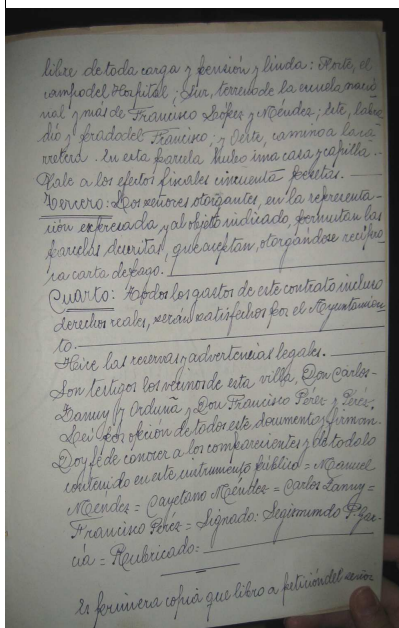 libre de toda carga y pensión y linda: Norte, el
campo del Hospital; Sur, terreno de la escuela nacio
nal y más de Francisco López y Méndez; Este, labra
dío y prado del Francisco; y Oeste, camino a la ca
rretera. En esta parcela hubo una casa y capilla.
Vale a los efectos fiscales cincuenta pesetas.
Tercero: Los señores otorgantes, en la representa-
ción expresada y al objeto indicado, permutan las
parcelas descritas, que aceptan, otorgándose recípro
ca carta de pago.
Cuarto: Todos los gastos de este contrato, incluso
derechos reales, serán satisfechos por el Ayuntamien
to.
Hice las reservas y advertencias legales.
Son testigos los vecinos de esta villa, Don Carlos-
Lanuy y Orduña y Don Francisco Pérez y Pérez.
Leí por opción de todos este documento y firman.
Doy fé de conocer a los comparecientes y de todo lo
contenido en este instrumento público = Manuel
Méndez = Cayetano Méndez = Carlos Lanuy =
Francisco Pérez = Signado: Segismundo P. Gar-
cía = Rubricado:
Es primera copia que libro a petición del señor